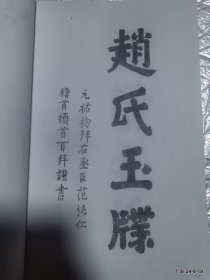 趙氏玉牒
元祐初拜右丞臣范純仁
稽首頓首百拜謹書